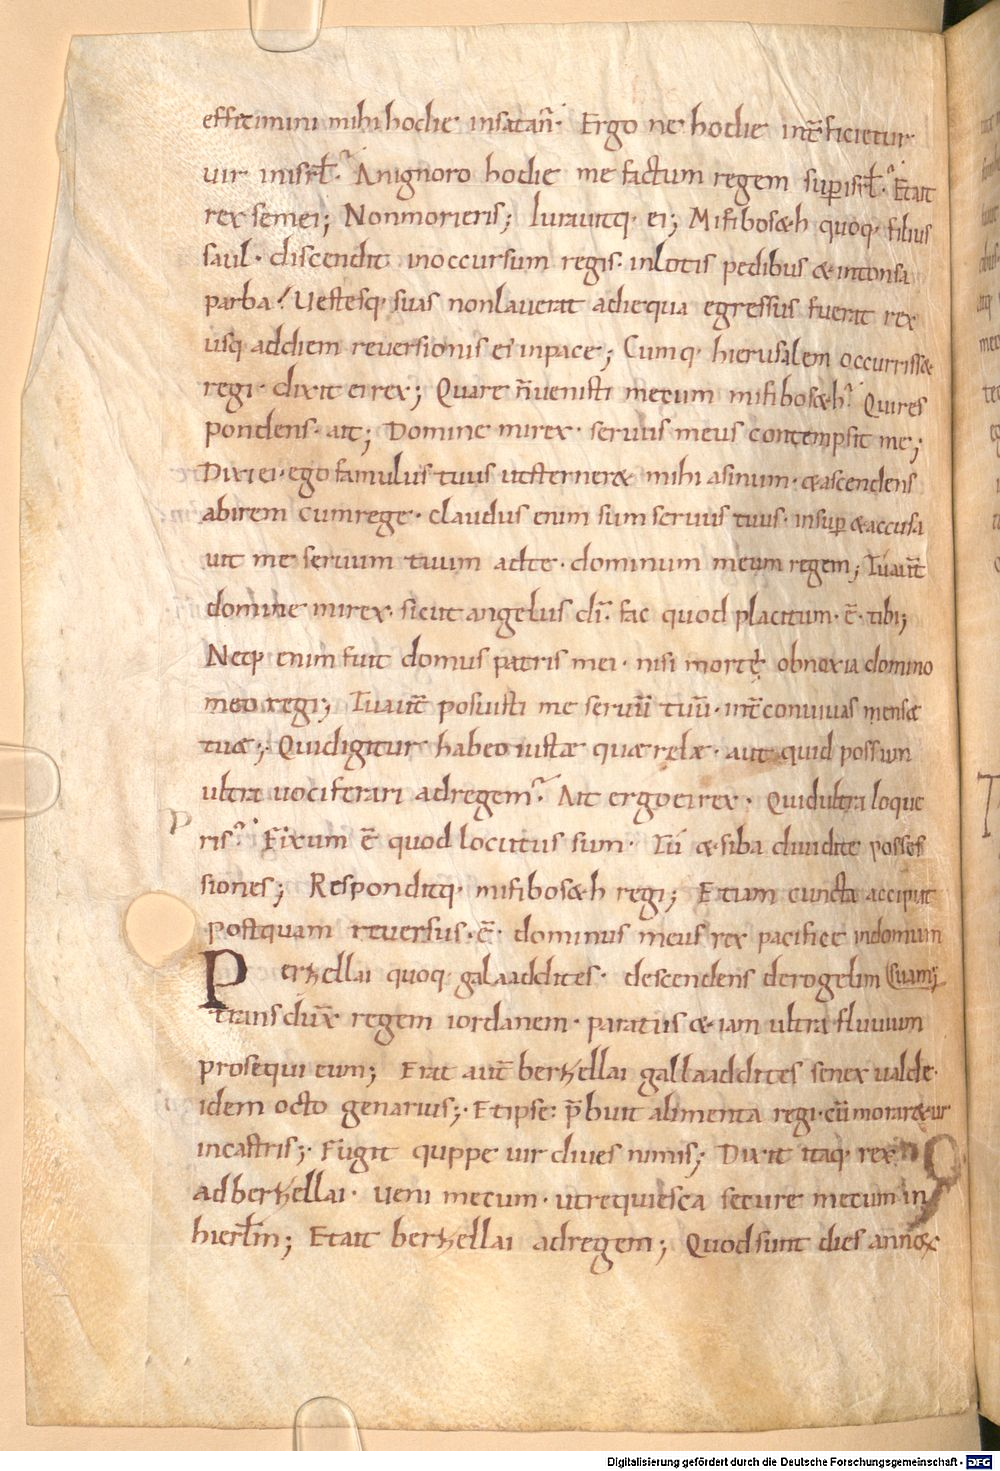 efficimini mihi hodie insatan̄· Ergo ne hodie int̄ficietur
uir inisrl̄? Anignoro hodie me factum regem sup isrl̄? Etait
rex semei; Nonmorieris; Iurauitq· ei; Mifiboseth quoq· filius
saul· discendit inoccursum regis· inlotis pedibus & intonsa
parba! Uestesq· suas nonlauerat adiequa egressus fuerat rex
usq addiem reuersionis ei inpace; Cumq· hierusalem occurriss&
regi· dixit eirex; Quare n̄uenisti mecum mifibos&h? Quires
pondens· ait; Domine mirex· seruus meus contempsit me;
Dixi ei· ego famulus tuus utsterner& mihi asinum· & ascendens
abirem cumrege· claudus enim sum seruus tuus· insup & accusa
uit me seruum tuum adte· dominum meum regem; Tuaut̄
domine mirex· sicut angelus dī· fac quod placitum· ē· tibi;
Neq· enim fuit domus patris mei· nisi mortę obnoxia domino
meo regi; Tuaut̄ posuisti me seruū tuū· int̄ conuiuas mensæ
tuæ; Quidigitur habeo iustæ quærelæ· aut quid possum
ultra uociferari adregem? Ait ergo ei rex· Quidultra loque
ris? Fixum ē quod locutus sum· Tu & siba diuidite posses
siones; Responditq· mifibos&h regi; Etiam cuncta accipiat
postquam reuersus· ē· dominus meus rex pacifice indomum
Berzellai quoq· galaaddites· descendens derogelim suam;
transdux̄ regem iordanem· paratus & iam ultra fluuium
prosequi eum; Erat aut̄ berzellai gallaaddites senex ualde·
idem octo genarius; Etipse p̄buit alimenta regi· cū morar&ur
incastris; Fugit quppe uir diues nimis; Dixit itaq· rex
adberzellai· Ueni mecum· utrequiesca secure mecum in
hierlm̄; Etait berzellai adregem; Quodsunt dies annoꝝ
Digitalisierung gefördert durch die Deutsche Forschungsgemeinschaft - DFG